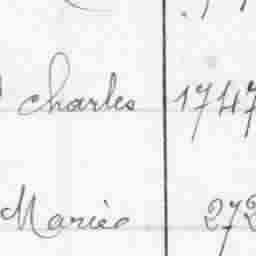 Charles 1747
Mariée 272